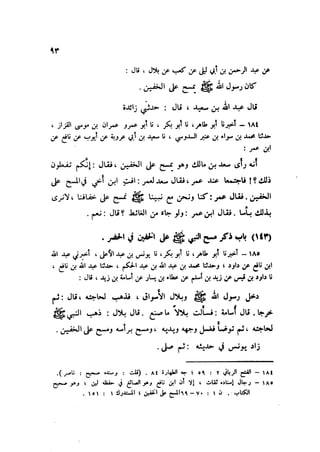 ٩٣
عن عبد الرحمن بن أبي ليلى عن كعب عن بلال ، قال :
كان رسول الله ﷺ يمسح على الخفين .
قال عبد الله بن سعيد ، قال : حدثني زائدة
١٨٤ - أخبرنا أبو طاهر، نا أبو بكر ، نا أبو عمرو عمران بن موسى القزاز ،
حدثنا محمد بن سواء بن عنبر السدوسي ، نا سعيد بن أبي عروبة عن أيوب عن نافع عن
ابن عمر :
أنه رأى سعد بن مالك وهو يمسح على الخفين ، فقال : إنكم تفعلون
ذلك ؟! فاجتمعا عند عمر، فقال سعد لعمر : افت ابن أخي في المسح على
الخفين. فقال عمر : كنا ونحن مع نبينا ﷺ نمسح على خفافنا ، لا نرى
بذلك بأساً . فقال ابن عمر : ولو جاء من الغائط ؟ قال : نعم .
(١٤٣) باب ذكر مسح النبي ﷺ على الخفين في الحضر .
١٨٥ - أخبرنا أبو طاهر، نا أبو بكر ، نا يونس بن عبد الأعلى ، أخبرني عبد الله
ابن نافع عن داود ؛ وحدثنا محمد بن عبد الله بن عبد الحكم ، حدثنا عبد الله بن نافع ،
نا داود بن قيس عن زيد بن أسلم عن عطاء بن يسار عن أسامة بن زيد ، قال :
دخل رسول الله ﷺ وبلال الأسواق ، فذهب لحاجته ، قال : ثم
خرجا . قال أسامة : فسألت بلالاً ما صنع . قال بلال : ذهب النبي ﷺ
لحاجته ، ثم توضأ فغسل وجهه ويديه ، ومسح برأسه ومسح على الخفين .
زاد يونس في حديثه : ثم صلى .
١٨٤ - الفتح الرباني ٢ : ٥٩ ؛ جه الطهارة ٨٤ . (قلت : وسنده صحيح : ناصر ).
١٨٥ - رجال إسناده ثقات ، إلا أن ابن نافع وهو الصائغ في حفظه لين ، وهو صحيح
الكتاب . ن ١ : ٧٠ - ٦٩ المسح على الخفين ؛ المستدرك ١ : ١٥١ .